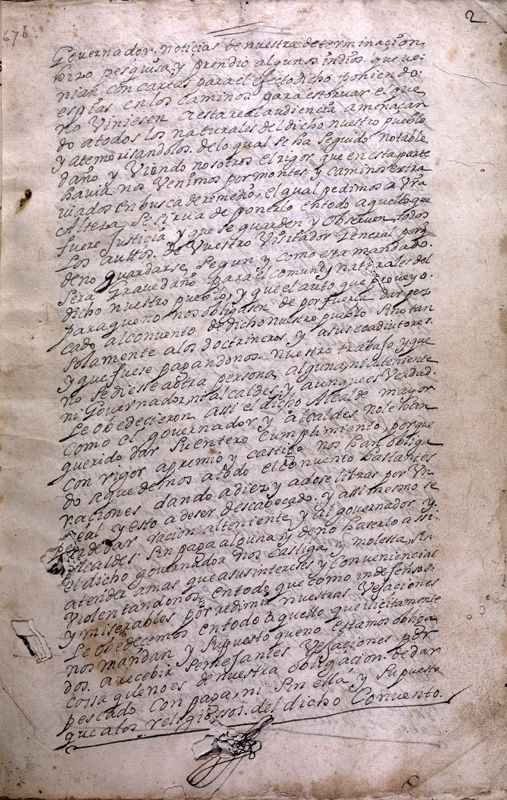 678
2
Governador. noticias de nuestra determinacion,
hizo pesquisa, y prendió algunos indios que ve-
nian con cartas para el efecto dicho poniendo.
espias en los caminos para estorvar el que
no viniesen a esta real audiencia amenaçan
do a todos los naturales del dicho nuestro pueblo
y atemorisandolos. de lo qual se ha seguido notable
daño y Viendo nosotros el rigor que en esta parte
havia nos Venimos por montes, y caminos extra
viados en busca de remedio, el qual pedimos a Vra
Alteza, se sirva de ponerlo en todo aquello que
fuere justicia, y que se guarden y Observen todos
los auttos. de Vuestro Visitador General, por q
de no guardarse, segun y como esta mandado.
sera gravedaño para el comun y naturales del
dicho nuestro pueblo, y que el auto que proveyo.
para que no nos obligasen de por fuerza dar pes
cado al convento de dicho nuestro pueblo sino tan
solamente a los doctrineros y a sus coadiutores.
y que fuese pagandonos nuestro trabajo, y que
no se diesse a otra persona alguna, ni al teniente
ni Governador ni alcaldes, y aunque es Verdad.
le obedecieron assi el dicho Alcalde mayor
como el governador, y alcaldes no le han
querido dar su entero cumplimiento, porque
con rigor apremio y castigo nos han obliga
do a que demos a todo el convento bastantes
raciones dando a diez y a dose libras por Vi-
 y esto a deser descabeçado. y assi mesmo se
 de dar racion al teniente, y al governador y.
alcaldes. sin paga alguna y de no hacerlo assi
el dicho governador nos castiga, y molesta, sin
atender a mas que a sus intereses y conveniencias
violentandonos, en todo, que como indefensos.
y miserables por redimir nuestras Vejaciones
le obedecemos en todo aquello que ilicitamente
nos mandan y supuesto que no estamos obliga
dos. a recebir semejantes Vejaciones por
cossa que no es de nuestra obligacion. de dar
pescado con paga, ni sin ella, y supuesto
que a los religiosos. del dicho Convento.